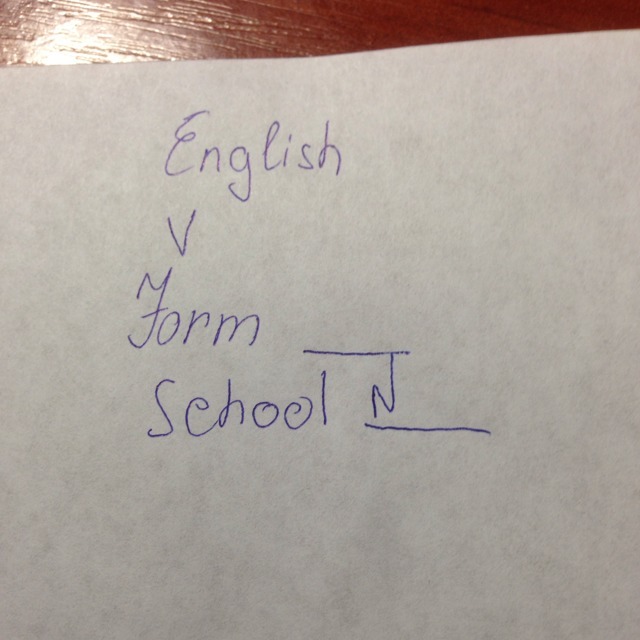 English
V
Form ___
School N ___